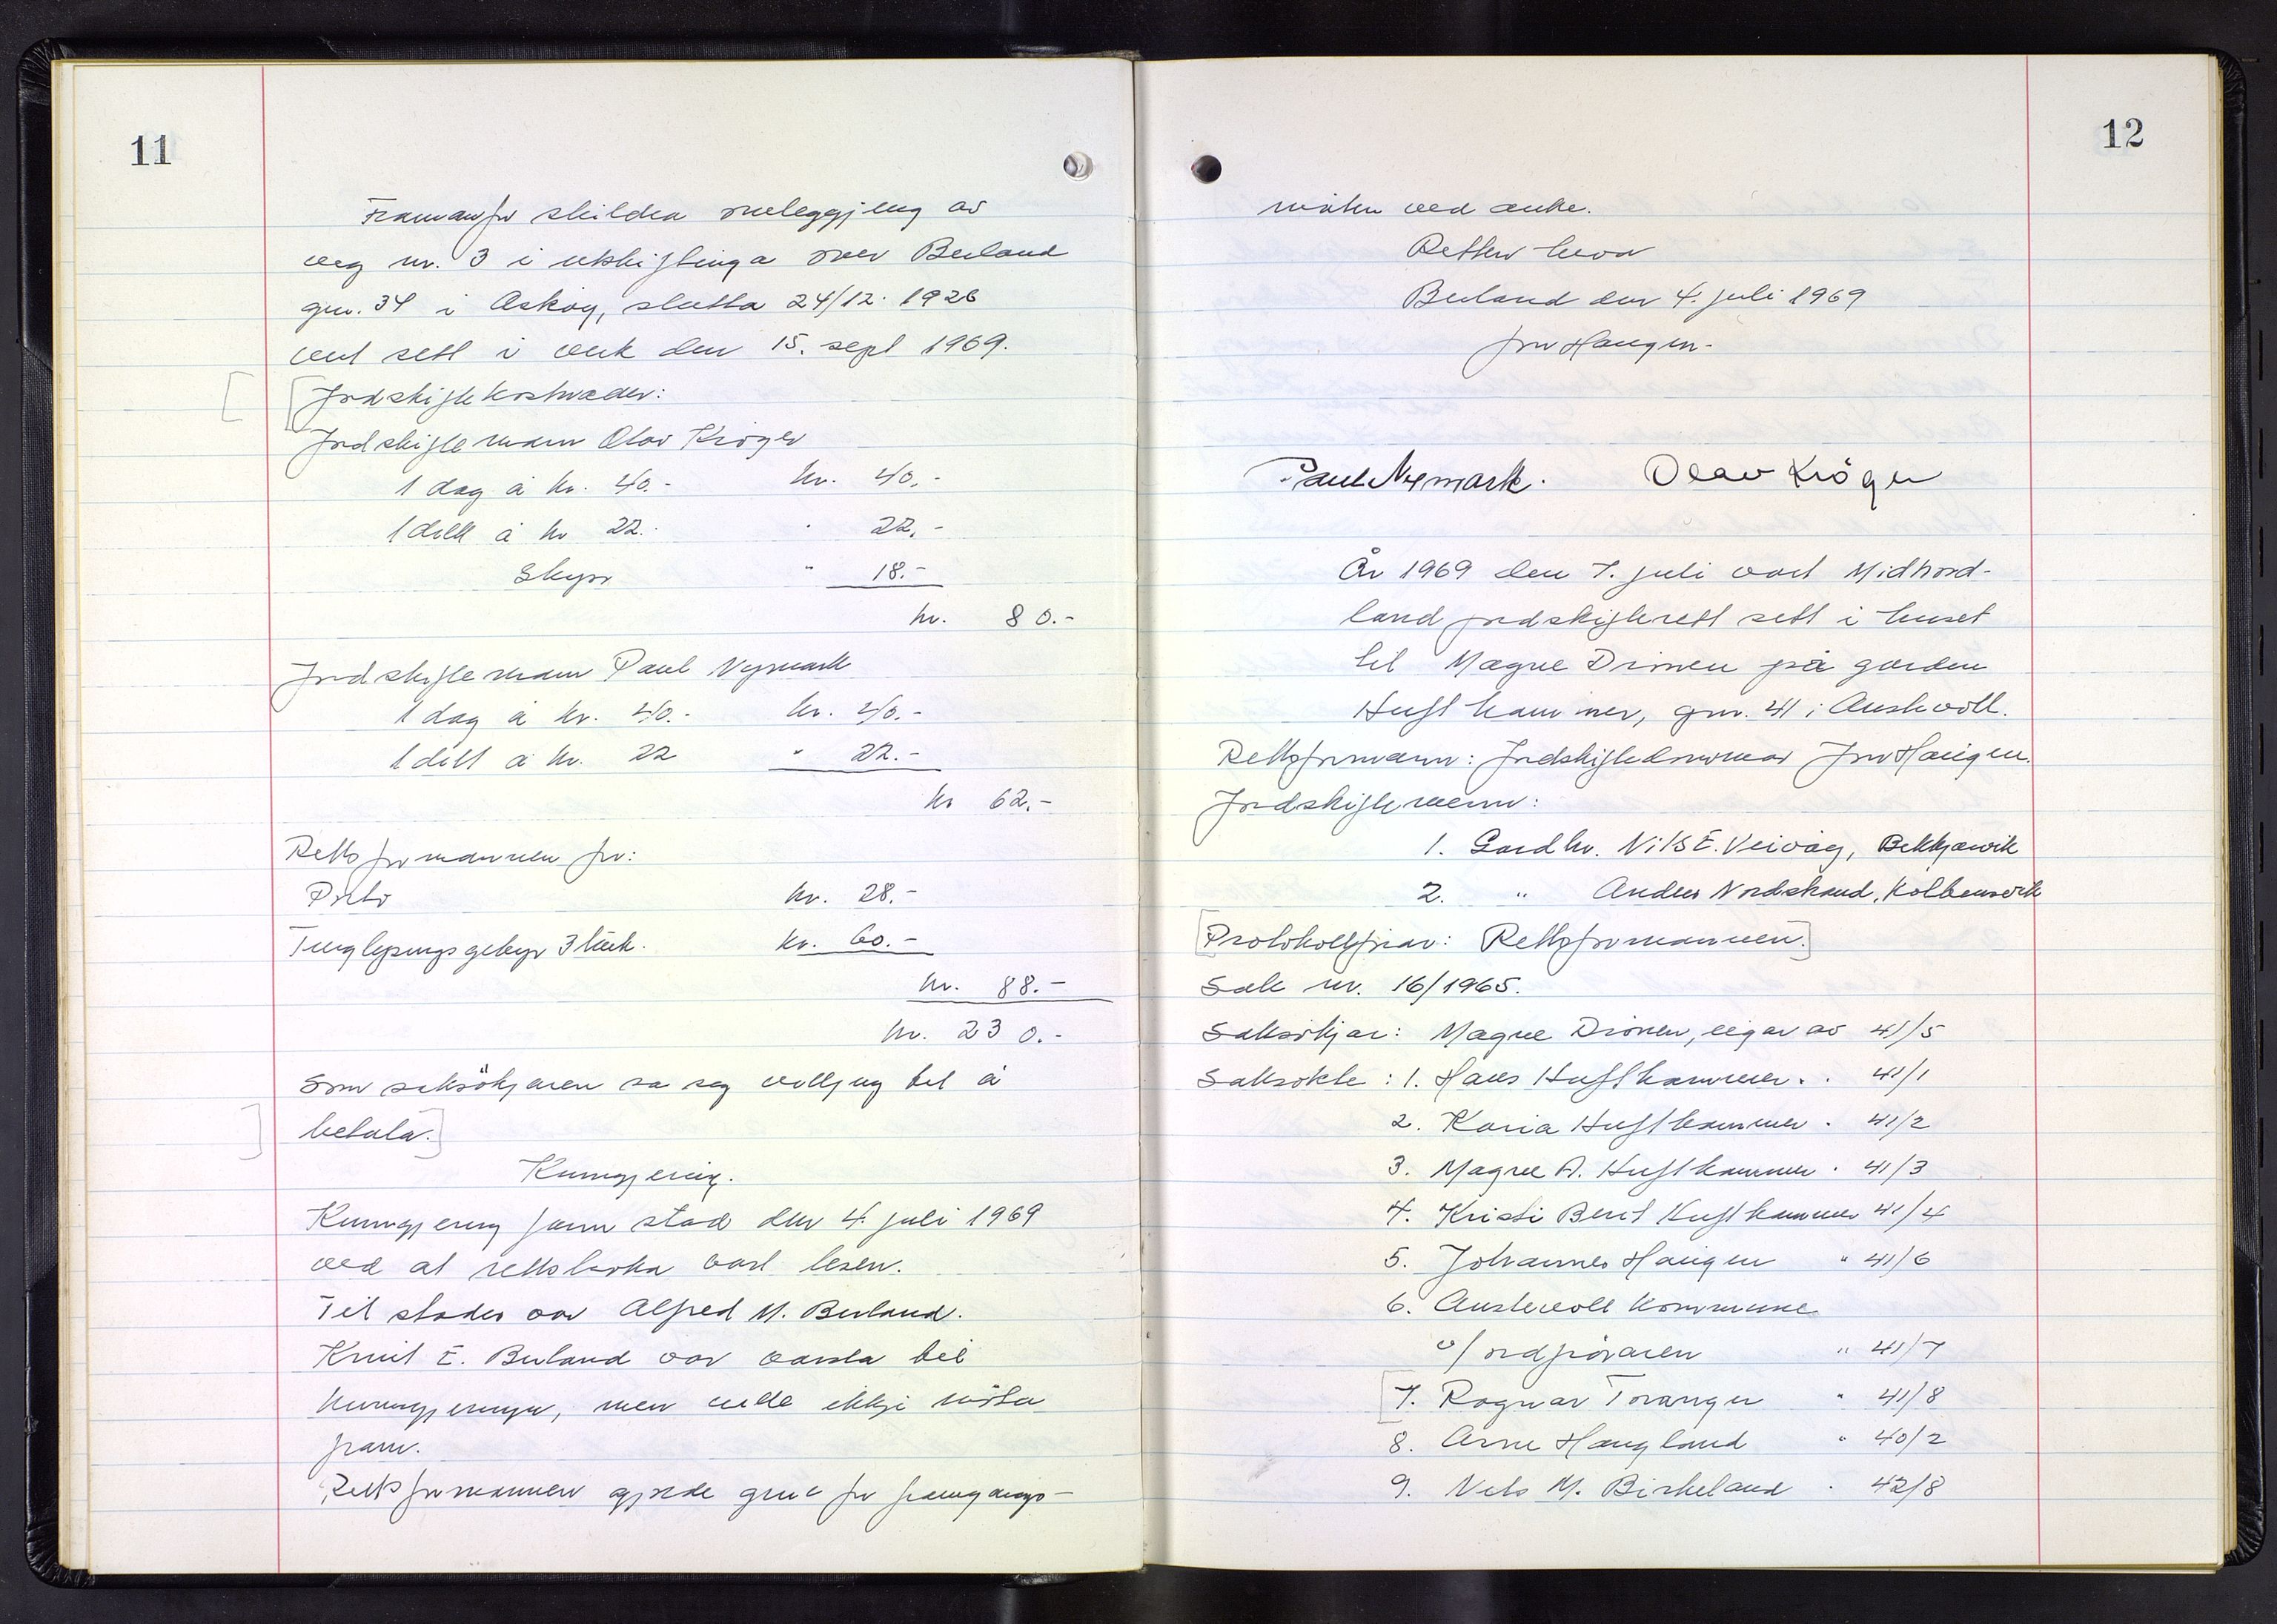 11
Framanfor skildra omleggjing av
veg nr. 3 i utskiftinga over Beuland
gnr. 34 i Askøy, slutta 24/12. 1926
vert sett i verk den 15. sept 1969.
Jordskiftekostnader:
Jordskiftemann Olav Kröger
1 dag à kr. 40.- kr. 40.-
1 diett à kr 22. " 22.-
Skyss " 18.-
kr. 80.-
Jordskiftemann Paul Nymark
1 dag à kr. 40.- kr. 40.-
1 diett à kr. 22 " 22.-
kr 62.-
Rettsformannen for:
Porto kr. 28.-
Tinglysingsgebyr 3 stk. kr. 60.-
kr. 88.-
kr. 230.-
Som saksökjaren sa seg velljug til å
betala.
Kunngjering.
Kunngjering fann stad den 4. juli 1969
ved at rettsboka vart lesen.
Til stades var Alfred M. Beuland.
Knut E. Beuland var varsla til
kunngjeringa, men ville ikkje möta
fram.
Rettsformannen gjorde greie for framgangs-
12
måten ved anke.
Retten heva
Beuland den 4. juli 1969
Jon Haugen.
Paul Nymark. Olav Kröger
År 1969 den 7. juli vart Midhord-
land jordskifterett sett i huset
til Magne Drönen på garden
Hufthammer, gnr. 41 i Austevoll.
Rettsformann: Jordskiftedommar Jon Haugen.
Jordskiftemenn:
1. Gardbr. Nils E. Veivåg, Bekkjarvik
2. " Anders Nordstrand, Kolbeinsvik
Protokollførar: Rettsformannen.
Sak nr. 16/1965.
Saksökjar: Magne Drönen, eigar av 41/5
Saksökte: 1. Hans Hufthammer " 41/1
2. Karia Hufthammer " 41/2
3. Magne A. Hufthammer " 41/3
4. Kristi Berit Hufthammer 41/4
5. Johannes Haugen " 41/6
6. Austevoll kommune
v/ ordföraren " 41/7
7. Ragnar Toranger " 41/8
8. Arne Haugland " 40/2
9. Nils M. Birkeland " 42/8